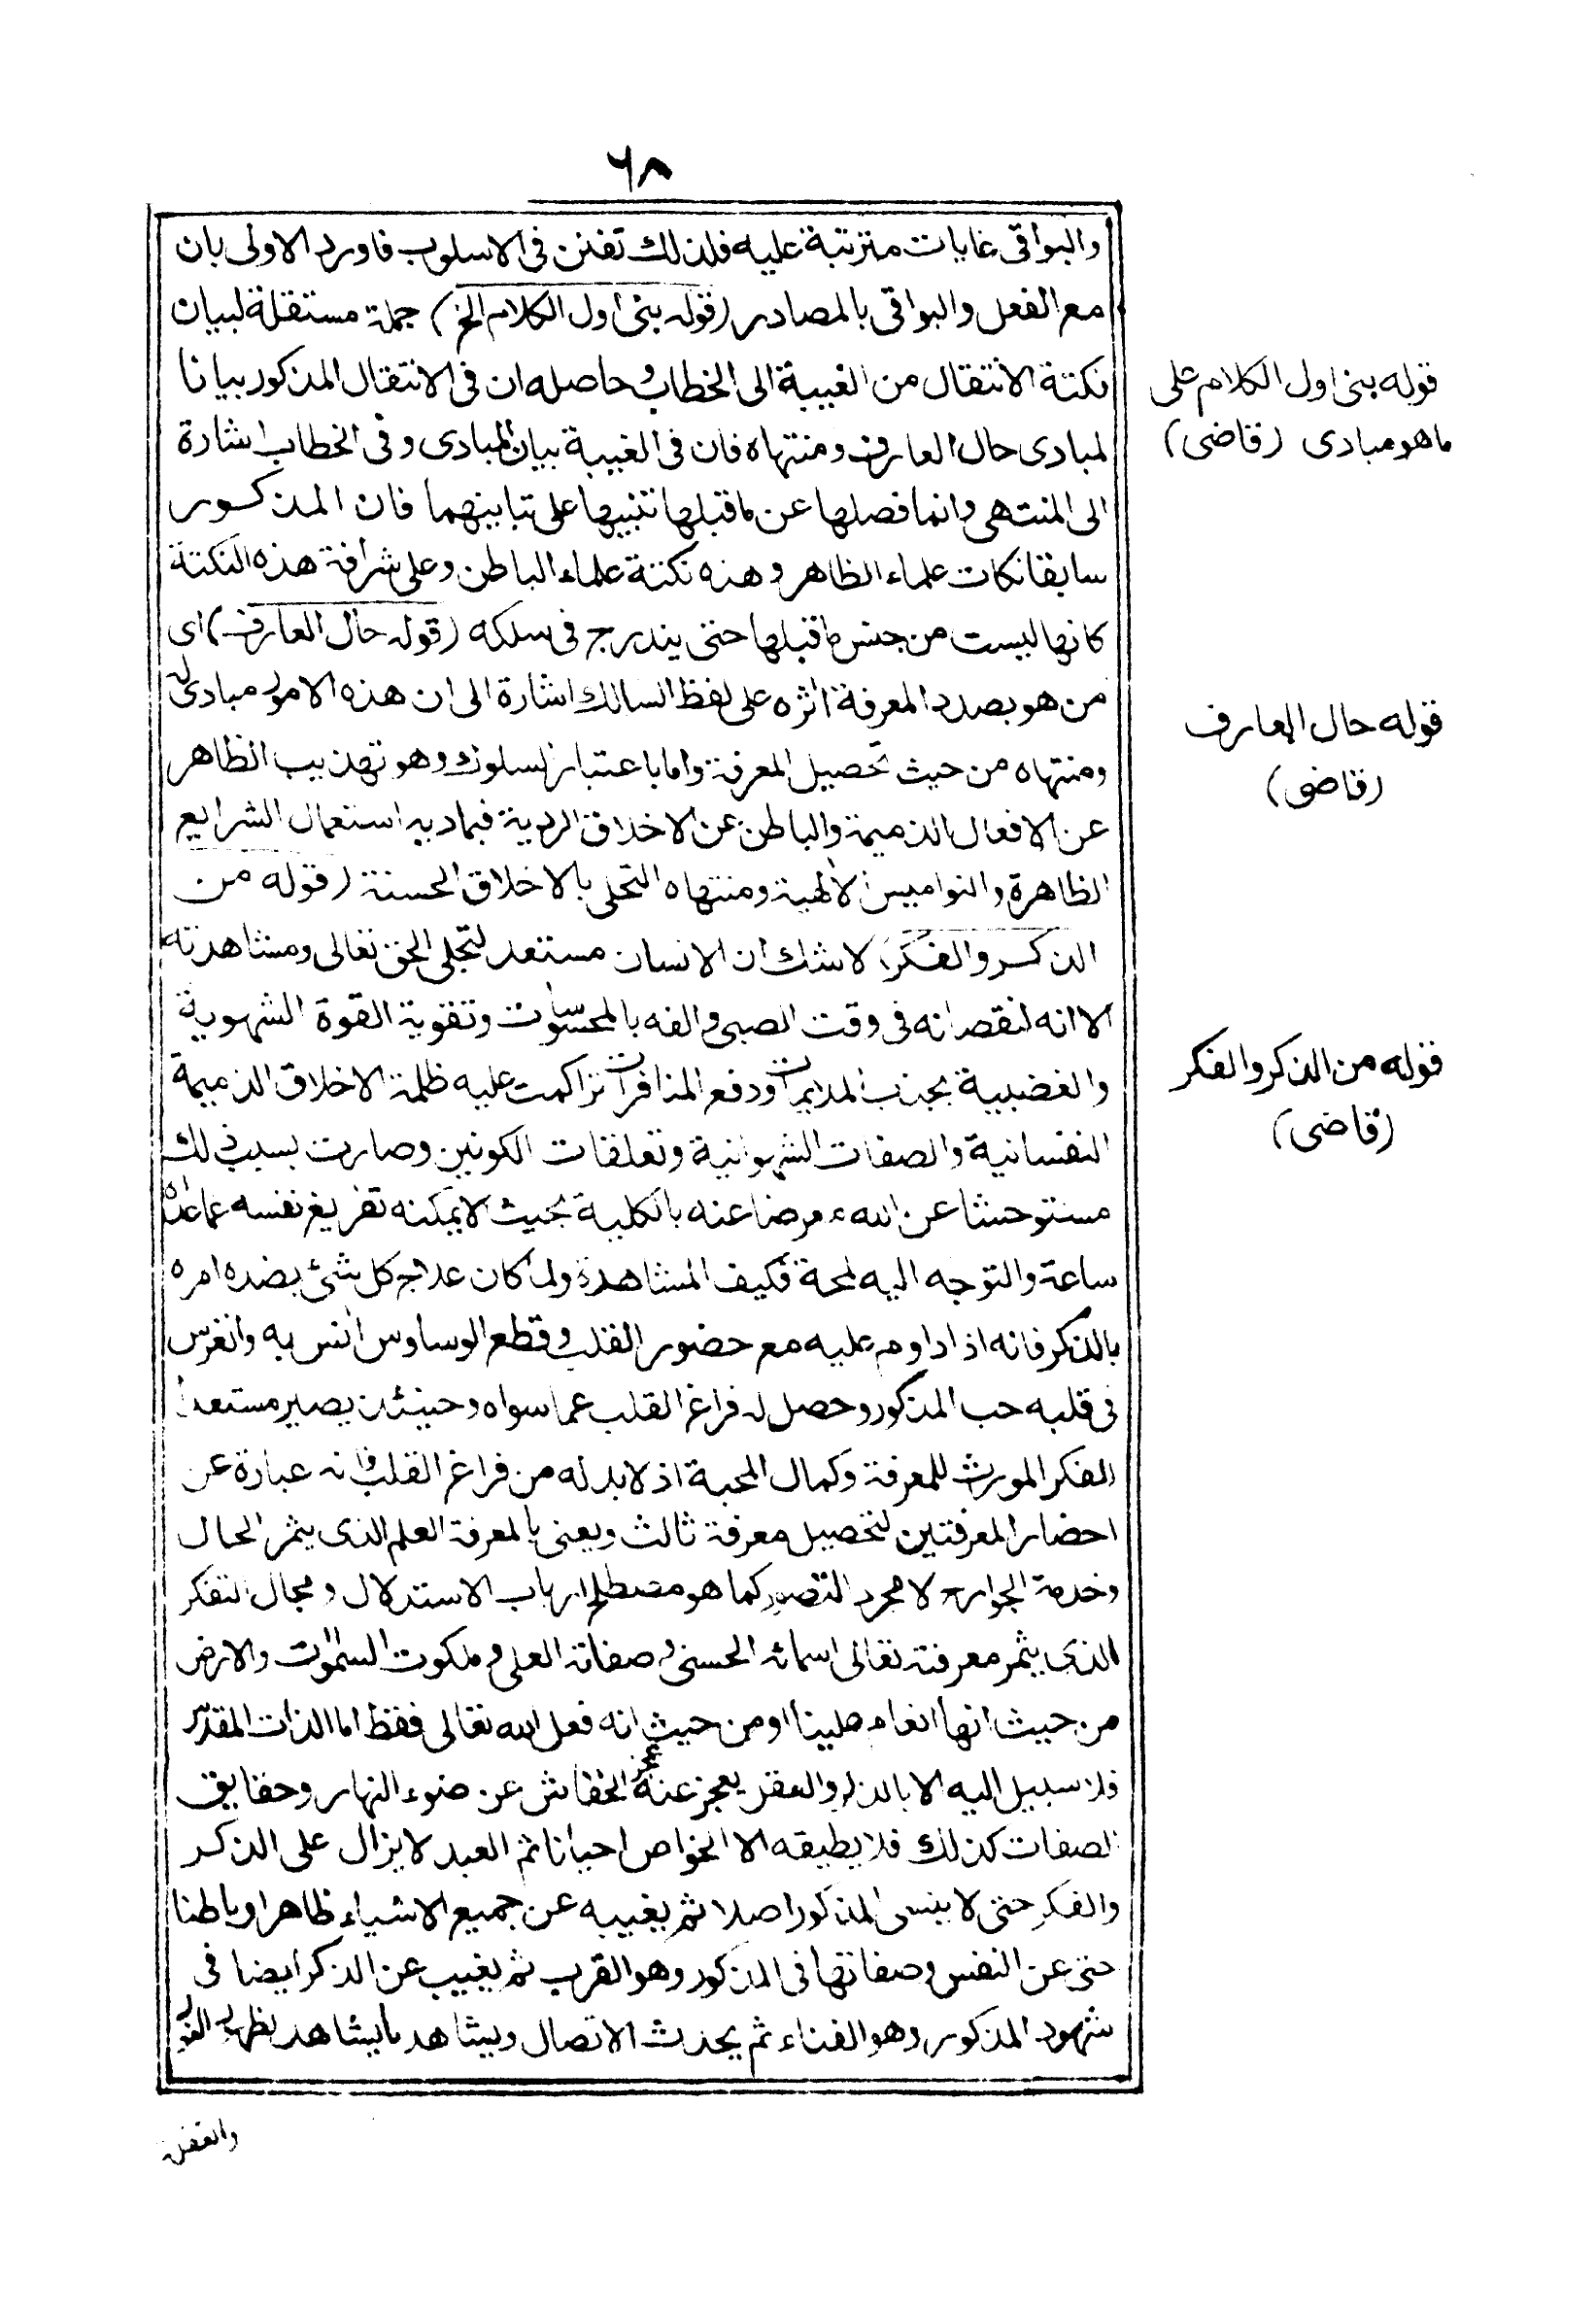 ٦٨
والبواقى غايات مترتبة عليه فلذلك تفنن فى الاسلوب فاورد الاولى بان
مع الفعل والبواقى بالمصادر (قوله بنى اول الكلام الخ) جملة مستقلة لبيان
نكتة الانتقال من الغيبة الى الخطاب وحاصله ان فى الانتقال المذكور بيانا
لمبادى حال العارف ومنتهاه فان فى الغيبة بيان المبادى وفى الخطاب اشارة
الى المنتهى وانما فصلها عن ما قبلها تنبيها على تباينهما فان المذكور
سابقا نكات علماء الظاهر وهذه نكتة علماء الباطن وعلى شرافة هذه النكتة
كانها ليست من جنس ما قبلها حتى يندرج فى سلكه (قوله حال العارف) اى
من هو بصدد المعرفة اثره على لفظ السالك اشارة الى ان هذه الامور مبادى له
ومنتهاه من حيث تحصيل المعرفة واما باعتبار السلوك وهو تهذيب الظاهر
عن الافعال الذميمة والباطن عن الاخلاق الردية فبماديه استعمال الشرايع
الظاهرة والنواميس الالهية ومنتهاه التحلى بالاخلاق الحسنة (قوله من
الذكر والفكر) لا شك ان الانسان مستعد لتجلى الحق تعالى ومشاهدته
الا انه لنقصانه فى وقت الصبى والفه بالمحسوسات وتقوية القوة الشهوية
والغضبية بجذب الملايمات ودفع المنافرات تراكمت عليه ظلمة الاخلاق الذميمة
النفسانية والصفات الشهوانية وتعلقات الكونين وصارت بسبب ذلك
مستوحشا عن الله معرضا عنه بالكلية بحيث لا يمكنه تفريغ نفسه عما عداه
ساعة والتوجه اليه لمحة فكيف المشاهدة ولما كان علاج كل شئ بضده امره
بالذكر فانه اذا داوم عليه مع حضور القلب وقطع الوساوس انس به وانغرس
فى قلبه حب المذكور وحصل له فراغ القلب عما سواه وحينئذ يصير مستعدا
الفكر المورث للمعرفة وكمال المحبة اذ لا بد له من فراغ القلب فانه عبارة عن
احضار المعرفتين لتحصيل معرفة ثالث ويعنى بالمعرفة العلم الذى يثمر الحال
وخدمة الجوارح لا مجرد التصور كما هو مصطلح ارباب الاستدلال ومجال التفكر
الذى يثمر معرفته تعالى اسمائه الحسنى وصفاته العلى وملكوت السموات والارض
من حيث انها انعام علينا او من حيث انه فعل الله تعالى فقط اما الذات المقدس
فلا سبيل اليه الا بالذكر والعقل يعجز عنه عجز الخفاش عن ضوء النهار وحقايق
الصفات كذلك فلا يطيقه الا الخواص احيانا ثم العبد لا يزال على الذكر
والفكر حتى لا ينسى المذكور اصلا ثم يغيبه عن جميع الاشياء ظاهرا وباطنا
حتى عن النفس وصفاتها فى المذكور وهو القرب ثم يغيب عن الذكر ايضا فى
شهود المذكور وهو الفناء ثم يحدث الاتصال ويشاهد ما يشاهد لظهور
قوله بنى اول الكلام على
ما هو مبادى (قاضى)
قوله حال العارف
(قاضى)
قوله من الذكر والفكر
(قاضى)